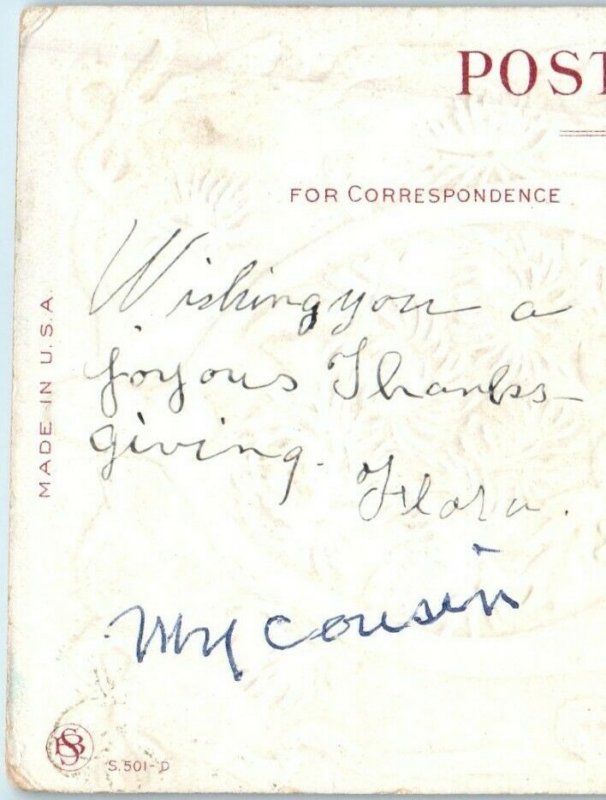 POST
FOR CORRESPONDENCE
MADE IN U.S.A.
Wishing you a
joyous Thanks-
giving.
Flora.
My cousin
S.501-D